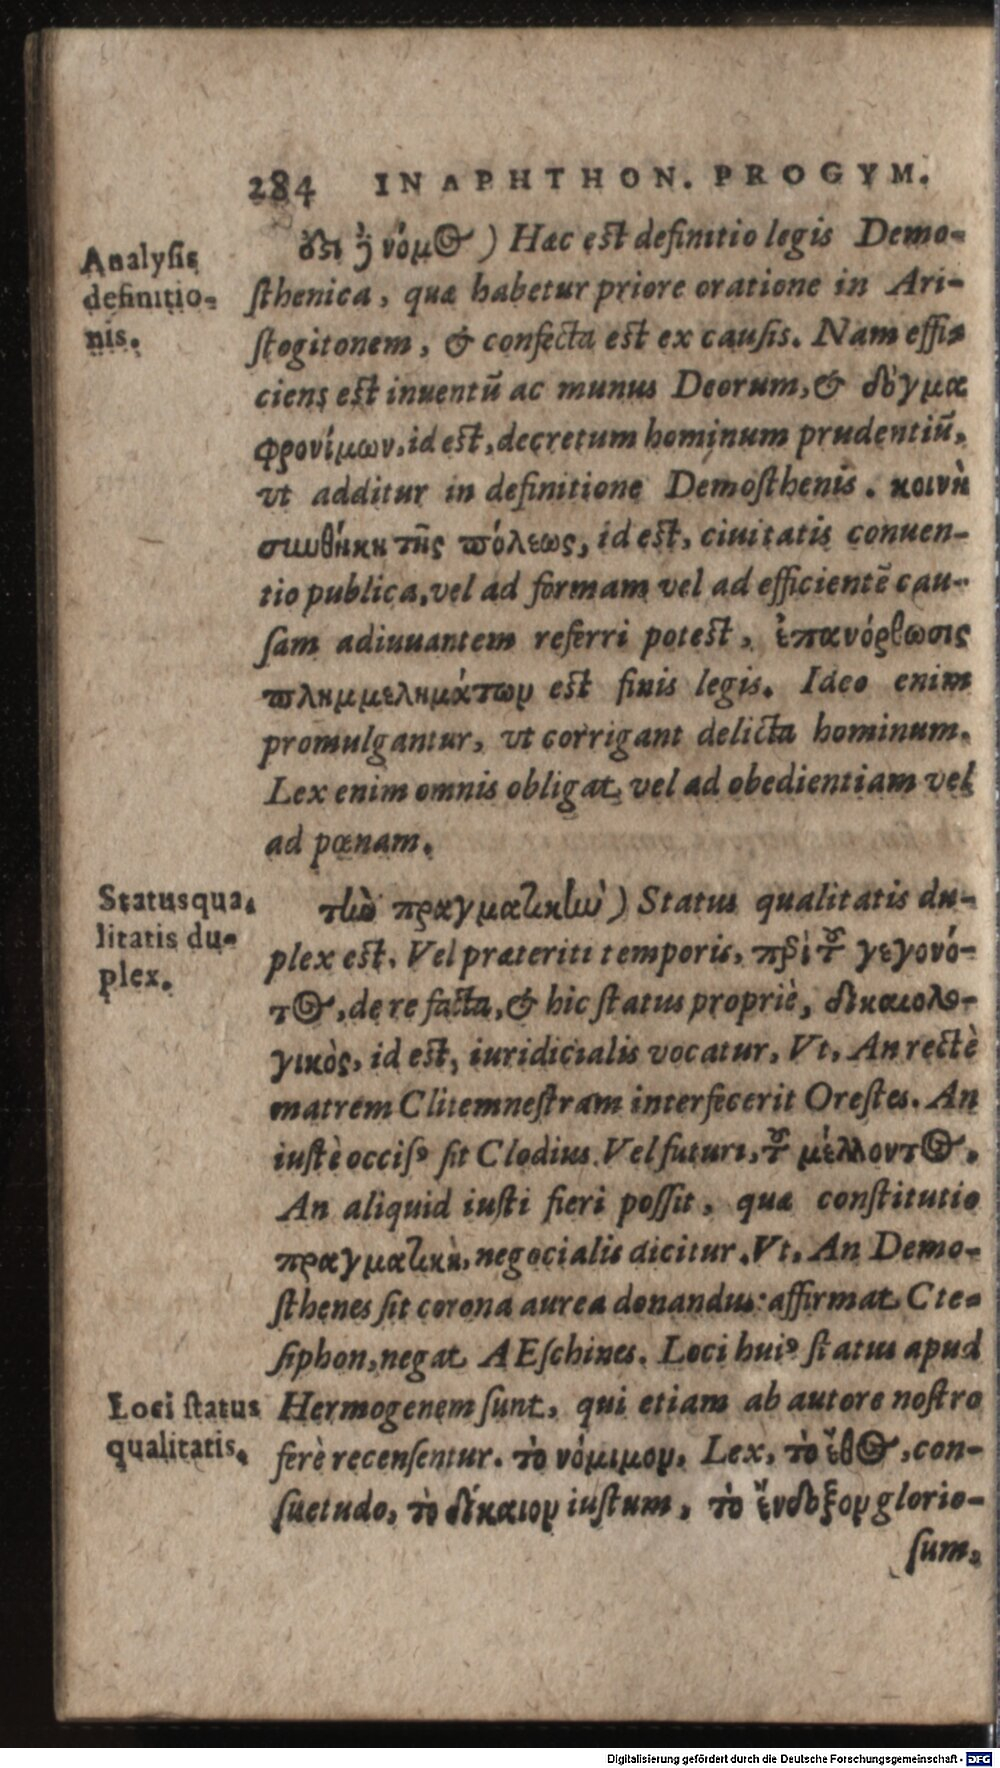 284 IN APHTHON. PROGYM.
Analysis
definitio-
nis.
ὅτι ἢ νόμος) Hæc est definitio legis Demo-
sthenica, quæ habetur priore oratione in Ari-
stogitonem, & confecta est ex causis. Nam effi-
ciens est inuentū ac munus Deorum, & δόγμα
φρονίμων, id est, decretum hominum prudentiū,
vt additur in definitione Demosthenis. κοινὴ
συνθήκη τῆς πόλεως, id est, ciuitatis conuen-
tio publica, vel ad formam vel ad efficientē cau-
sam adiuuantem referri potest, ἐπανόρθωσις
πλημμελημάτων est finis legis. Ideo enim
promulgantur, vt corrigant delicta hominum.
Lex enim omnis obligat, vel ad obedientiam vel
ad pœnam.
Status qua-
litatis du-
plex.
τὼ πραγματικὼ) Status qualitatis du-
plex est. Vel præteriti temporis, περὶ τοῦ γεγονό-
τος, de re facta, & hic status propriè, δικαιολο-
γικὸς, id est, iuridicialis vocatur, Vt, An rectè
matrem Clitemnestram interfecerit Orestes. An
iustè occisꝰ sit Clodius. Vel futuri, τοῦ μέλλοντος.
An aliquid iusti fieri possit, quæ constitutio
πραγματικὴ, negocialis dicitur. Vt, An Demo-
sthenes sit corona aurea donandus: affirmat Cte-
siphon, negat AEschines. Loci huiꝰ status apud
Loci status
qualitatis.
Hermogenem sunt, qui etiam ab autore nostro
ferè recensentur. τὸ νόμιμον, Lex, τὸ ἔθος, con-
suetudo, τὸ δίκαιον iustum, τὸ ἔνδοξον glorio-
sum,
Digitalisierung gefördert durch die Deutsche Forschungsgemeinschaft - DFG